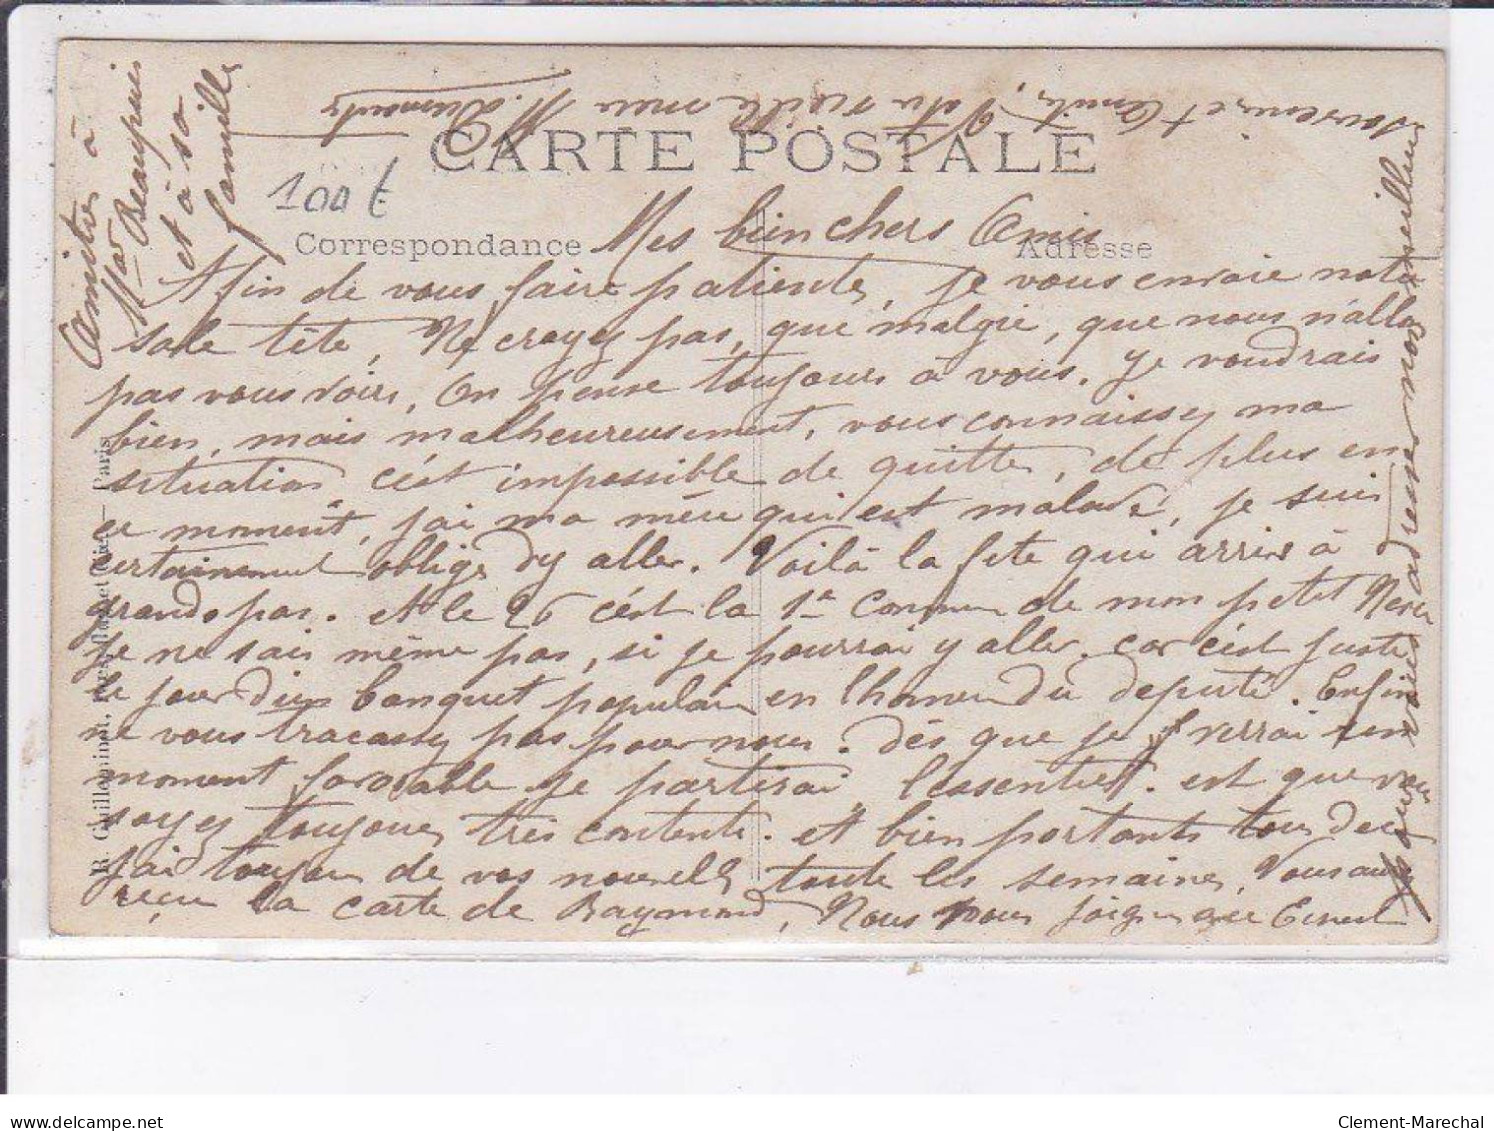 CARTE POSTALE
100 €
Correspondance
Adresse
Mes bien chers Amis
Afin de vous faire patienter, je vous envoie notre
sale tête, Ne croyez pas, que malgre, que nous n'allons
pas vous voir, On pense toujours à vous. Je voudrais
bien, mais malheureusement, vous connaissez ma
situation, c'est impossible de quitter, de plus en
ce moment, j'ai ma mère qui est malade, je suis
certainement obligé d'y aller. Voilà la fete qui arrive à
grands pas. et le 26 c'est la 1re Commun de mon petit Neveu
Je ne sais même pas, si je pourrai y aller. car c'est juste
le jour d'un banquet populaire en l'honneur du deputé. Enfin
ne vous tracassez pas pour nous. dès que je verrai un
moment favorable je partirai l'essentiel. est que vous
soyez toujours très contents. et bien portants tous deux
j'ai toujours de vos nouvelles toute les semaines, Vous avez
reçu la carte de Raymond, Nous nous joignons Ernest
pour vous adresser nos meilleurs
souvenirs et Amitiés, Votre vieille amie M. Dumonts
Amitiés à
Mar Beaupuis
et à sa
famille
R. Guilleminot, Paris
Clement-Marechal
delcampe.net